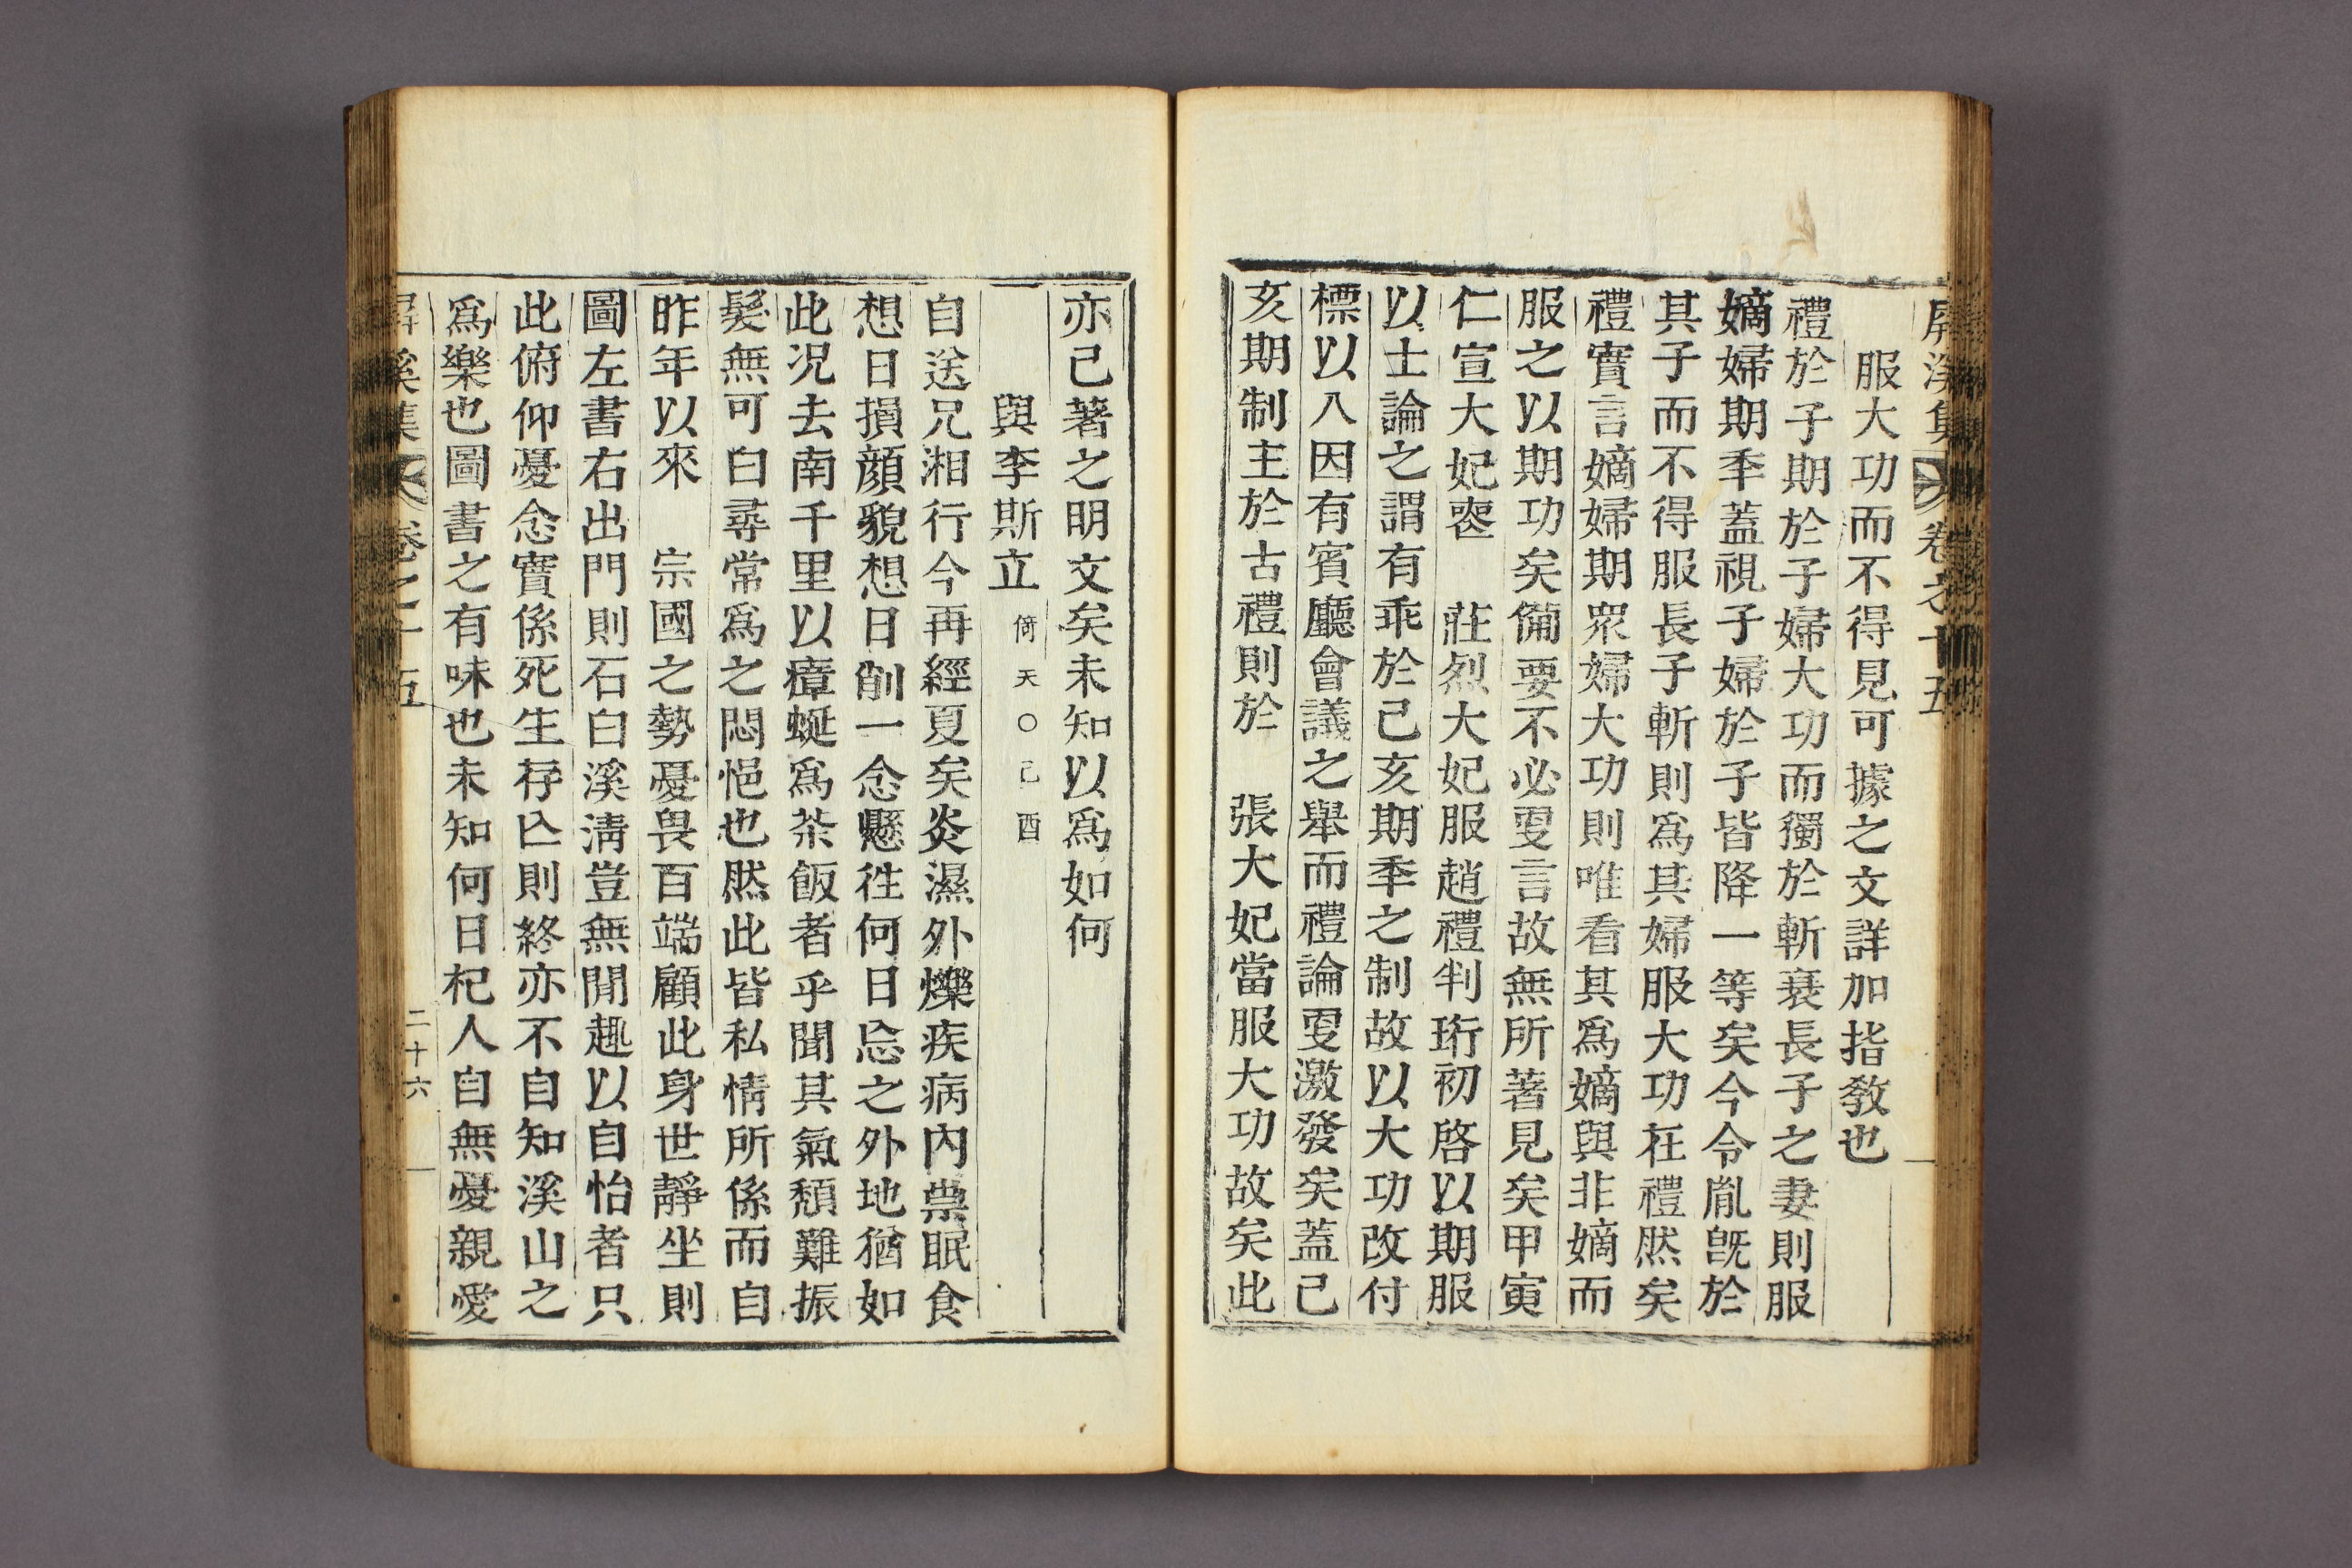 屛溪集 卷之十五
服大功而不得見可據之文詳加指敎也
禮於子期於子婦大功而獨於斬衰長子之妻則服
嫡婦期秊蓋視子婦於子皆降一等矣今令胤旣於
其子而不得服長子斬則爲其婦服大功在禮然矣
禮實言嫡婦期衆婦大功則唯看其爲嫡與非嫡而
服之以期功矣備要不必更言故無所著見矣甲寅
仁宣大妃喪 莊烈大妃服趙禮判珩初啓以期服
以士論之謂有乖於己亥期秊之制故以大功改付
標以入因有賓廳會議之舉而禮論更激發矣蓋己
亥期制主於古禮則於 張大妃當服大功故矣此
亦已著之明文矣未知以爲如何
與李斯立 倚天○己酉
自送兄湘行今再經夏矣炎濕外爍疾病內祟眠食
想日損顔貌想日削一念懸往何日忘之外地猶如
此况去南千里以瘴蜒爲茶飯者乎聞其氣頹難振
髮無可白尋常爲之悶悒也然此皆私情所係而自
昨年以來 宗國之勢憂畏百端顧此身世靜坐則
圖左書右出門則石白溪淸豈無閒趣以自怡者只
此俯仰憂念實係死生存亾則終亦不自知溪山之
爲樂也圖書之有味也未知何日杞人自無憂親愛
屛溪集 卷之十五 二十六